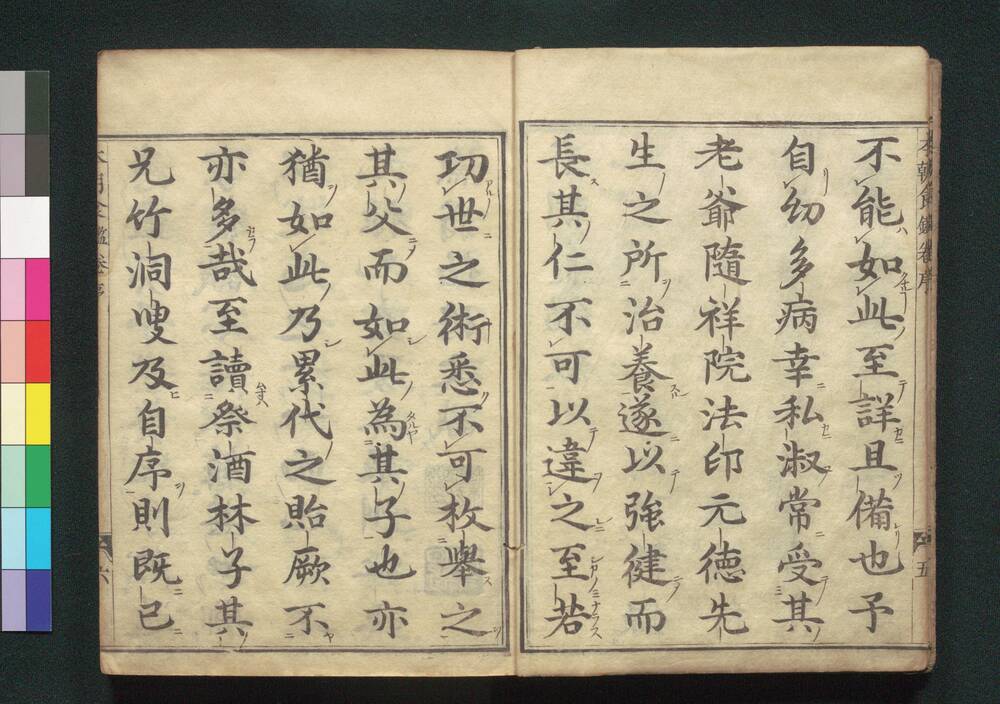 不能如此至詳且備也予
自幼多病幸私淑常受其
老爺隨祥院法印元德先
生之所治養遂以強健而
長其仁不可以違之至若
五
功世之術悉不可枚舉之
其父而如此為其子也亦
猶如此乃累代之貽厥不
亦多哉至讀祭酒林子其
兄竹洞叟及自序則既已
六